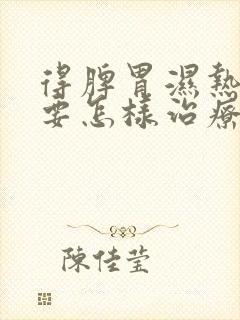 得脾胃濕熱
要怎樣治療
陳佳莹